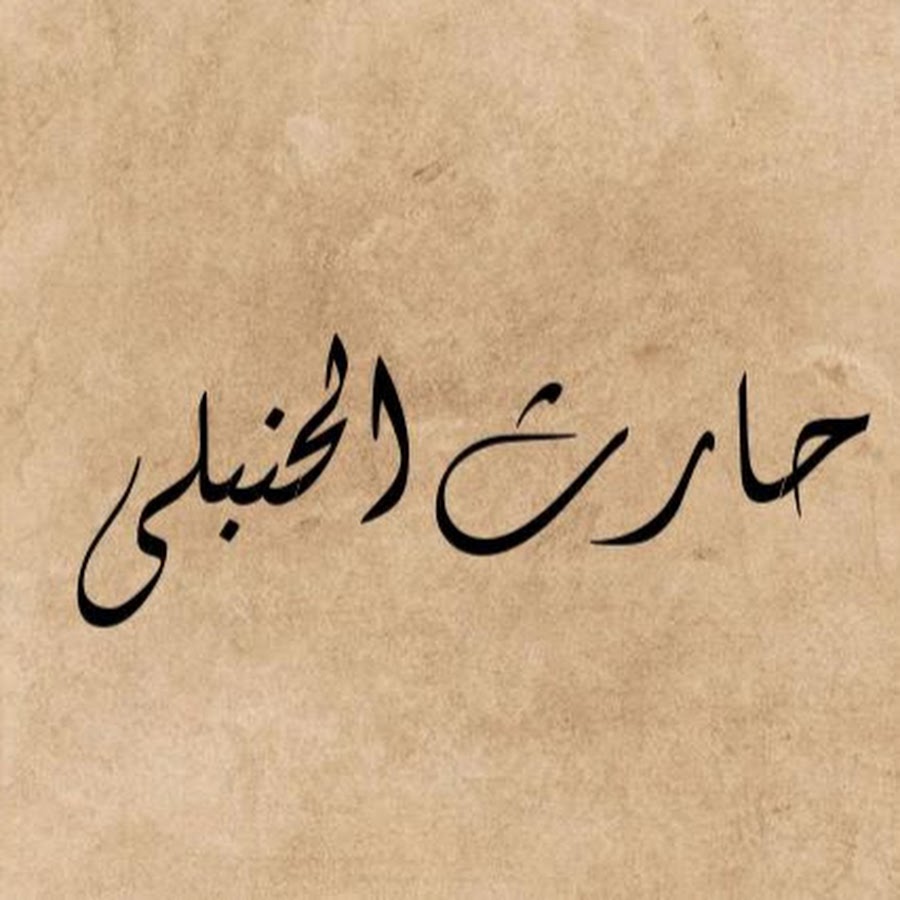 حارث الحنبلي